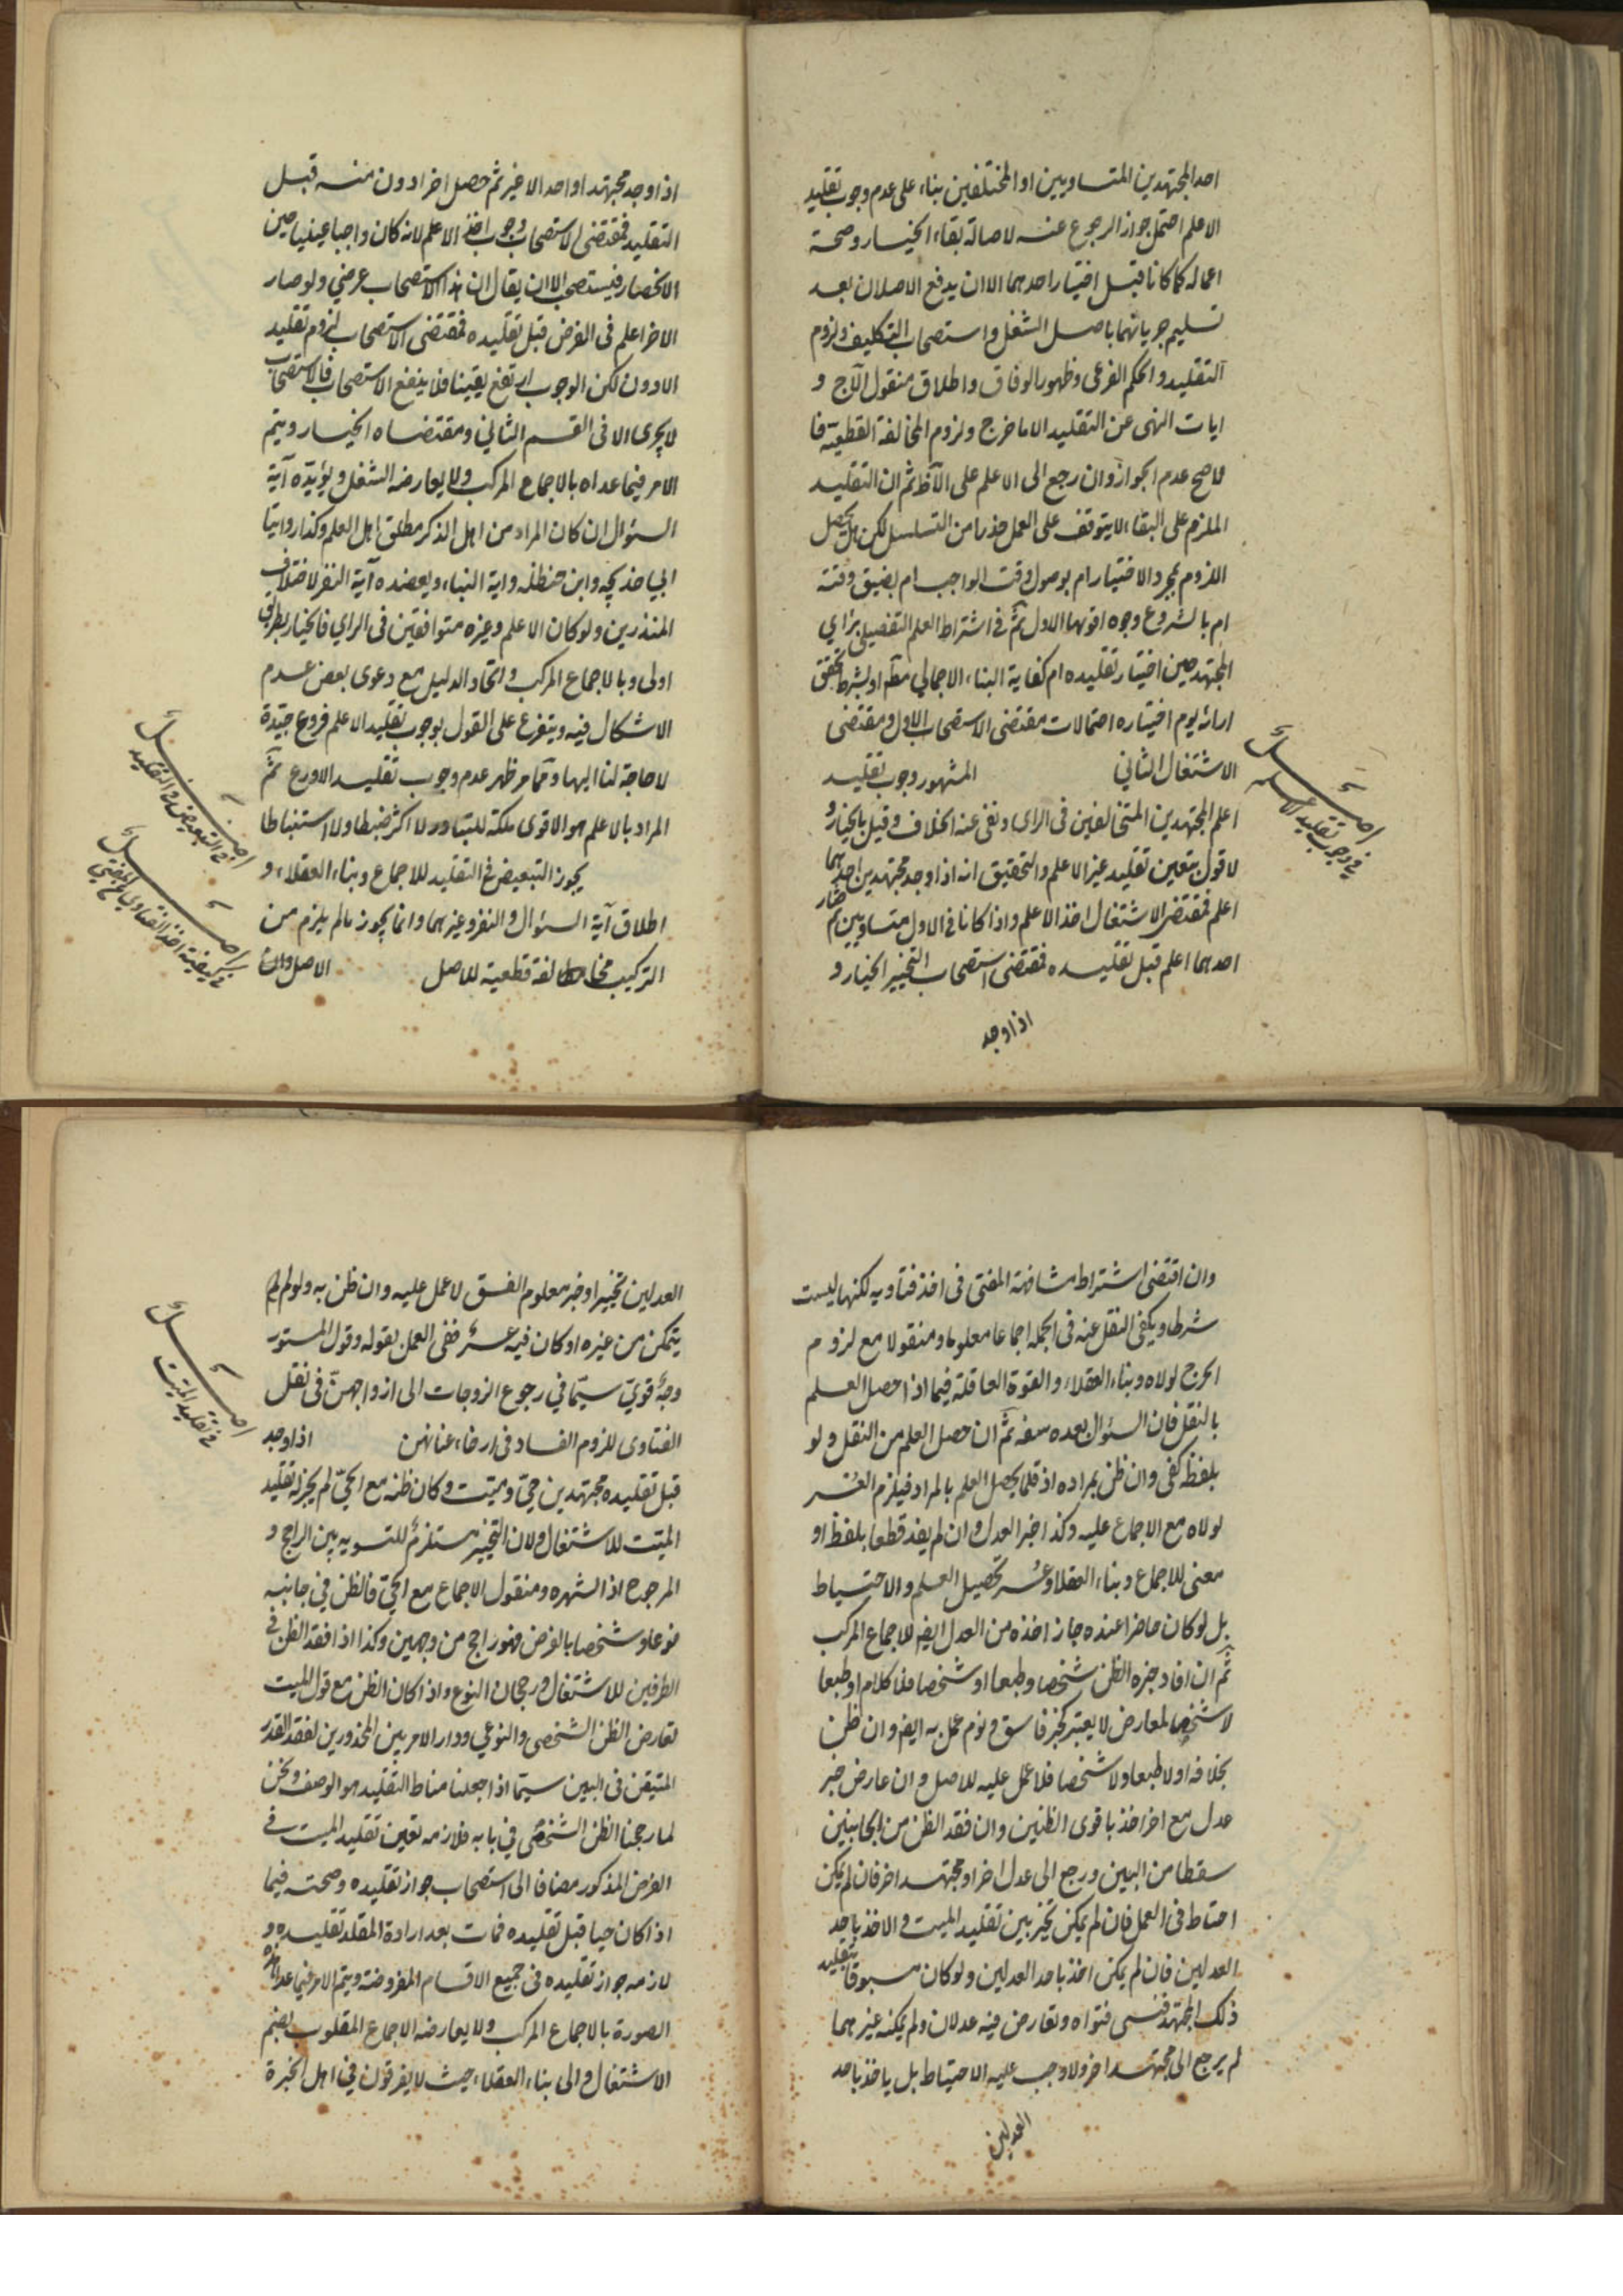 احد المجتهدين المتساويين او المختلفين بناء على عدم وجوب تقليد
الاعلم احتمل جواز الرجوع عنه لاصالة بقاء الخيار وصحة
اعماله كما كانا قبل اختيار احدهما الا ان يدفع الاصلان بعد
تسليم جريانهما باصل الشغل واستصحاب التكليف ولزوم
التقليد والحكم الفرعى وظهور الوفاق واطلاق منقول الآج و
ايات النهى عن التقليد الا ما خرج ولزوم المخالفة القطعية فا
لاصح عدم الجواز وان رجع الى الاعلم على الآظ ثم ان التقليد
الملزم على البقاء لا يتوقف على العمل حذرا من التسلسل لكن هل يحصل
اللزوم بمجرد الاختيار ام بوصول وقت الواجب ام بضيق وقته
ام بالشروع وجوه اقويها الاول ثم في اشتراط العلم التفصيلي براي
المجتهد حين اختيار تقليده ام كفاية البناء الاجمالي مطّ او بشرط تحقق
ارائه يوم اختياره احتمالات مقتضى الاستصحاب الاول ومقتضى
الاشتغال الثاني المشهور وجوب تقليد
اصل
في وجوب تقليد الاعلم
اعلم المجتهدين المتخالفين فى الراى ونفى عنه الخلاف وقيل بالخيار و
لا قول بتعين تقليد غير الاعلم والتحقيق انه اذا وجد مجتهدين احدهما
اعلم فمقتضى الاشتغال اخذ الاعلم واذا كانا فى الاول متساويين ثم صار
احدهما اعلم قبل تقليده فمقتضى استصحاب التخيير الخيار و
اذا وجد
اذا وجد مجتهدا واحدا لا غير ثم حصل اخر ادون منه قبل
التقليد فمقتضى الاستصحاب وجوب اخذ الاعلم لانه كان واجبا عينيا حين
الانحصار فيستصحب الا ان يقال ان هذا الاستصحاب عرضي ولو صار
الاخر اعلم فى الفرض قبل تقليده فمقتضى الاستصحاب لزوم تقليد
الادون لكن الوجوب ارتفع يقينا فلا ينفع الاستصحاب فالاستصحاب
لا يجرى الا فى القسم الثاني ومقتضاه الخيار ويتم
الامر فيما عداه بالاجماع المركب ولا يعارضه الشغل ويؤيده آية
السؤال ان كان المراد من اهل الذكر مطلق اهل العلم وكذا روايتا
ابي خديجه وابن حنظله واية النباء ويعضده آية النفر لاختلاف
المنذرين ولو كان الاعلم وغيره متوافقين فى الراي فالخيار بطريق
اولى وبالاجماع المركب واتحاد الدليل مع دعوى بعض عدم
الاشكال فيه ويتفرع على القول بوجوب تقليد الاعلم فروع جيّدة
لا حاجة لنا اليها وممّا مر ظهر عدم وجوب تقليد الاورع ثمّ
المراد بالاعلم هو الاقوى ملكة للتبادر لا اكثر ضبطا ولا استنباطا
اصل
في التبعيض في التقليد
يجوز التبعيض في التقليد للاجماع وبناء العقلاء و
اطلاق آية السؤال والنفر وغيرهما وانما يجوز ما لم يلزم من
التركيب مخالفة قطعية للاصل الاصل وان
اصل
في كيفية اخذ الفتاوى من المفتي
وان اقتضى اشتراط مشافهة المفتى فى اخذ فتاويه لكنها ليست
شرطا ويكفى النقل عنه فى الجملة اجماعا معلوما ومنقولا مع لزوم
الحرج لولاه وبناء العقلاء والقوة العاقلة فيما اذا حصل العلم
بالنقل فان السؤال بعده سفه ثمّ ان حصل العلم من النقل ولو
بلفظه كفى وان ظن بمراده اذ قلما يحصل العلم بالمراد فيلزم العسر
لولاه مع الاجماع عليه وكذا خبر العدل وان لم يفد قطعا بلفظ او
معنى للاجماع وبناء العقلاء وعسر تحصيل العلم والاحتياط
بل لو كان حاضرا عنده جاز اخذه من العدل ايضا للاجماع المركب
ثمّ ان افاد خبره الظن شخصا وطبعا او شخصا فلا كلام او طبعا
لا شخصا لمعارض لا يعتبر كخبر فاسق ونوم عمل به ايضا وان ظن
بخلافه او لا طبعا ولا شخصا فلا عمل عليه للاصل وان عارض خبر
عدل مع اخر اخذ باقوى الظنين وان فقد الظن من الجانبين
سقطا من البين ورجع الى عدل اخر او مجتهد اخر فان لم يمكن
احتاط فى العمل فان لم يمكن تخير بين تقليد الميت والاخذ باحد
العدلين فان لم يمكن اخذ باحد العدلين ولو كان مسبوقا بتقليد
ذلك المجتهد فنسى فتواه وتعارض فيه عدلان ولم يمكنه غيرهما
لم يرجع الى مجتهد اخر ولا وجب عليه الاحتياط بل ياخذ باحد
العدلين
العدلين تخييرا وخبر معلوم الفسق لا عمل عليه وان ظن به ولو لم
يتمكن من غيره او كان فيه عسر ففى العمل بقوله وقول المستور
وجه قوي سيّما في رجوع الزوجات الى ازواجهنّ فى نقل
الفتاوى للزوم الفساد فى ارخاء عنانهن اذا وجد
اصل
في تقليد الميت
قبل تقليده مجتهدين حيّ وميت وكان ظنه مع الحيّ لم يجز له تقليد
الميت للاشتغال ولان التخيير مستلزم للتسويه بين الراجح و
المرجوح اذ الشهره ومنقول الاجماع مع الحيّ فالظن في جانبه
نوعا وشخصا بالفرض فهو راجح من وجهين وكذا اذا فقد الظن في
الطرفين للاشتغال ورجحان النوع واذا كان الظن مع قول الميت
تعارض الظن الشخصى والنوعي ودار الامر بين المحذورين لفقد القدر
المتيقن فى البين سيّما اذا جعلنا مناط التقليد هو الوصف ونحن
لما رجحنا الظن الشخصي في بابه فلازمه تعين تقليد الميت في
الفرض المذكور مضافا الى استصحاب جواز تقليده وصحته فيما
اذا كان حيا قبل تقليده فمات بعد ارادة المقلد تقليده و
لازمه جواز تقليده فى جميع الاقسام المفروضة ويتم الامر فيما عدا هذه
الصورة بالاجماع المركب ولا يعارضه الاجماع المقلوب بضم
الاشتغال والى بناء العقلاء حيث لا يفرقون في اهل الخبرة